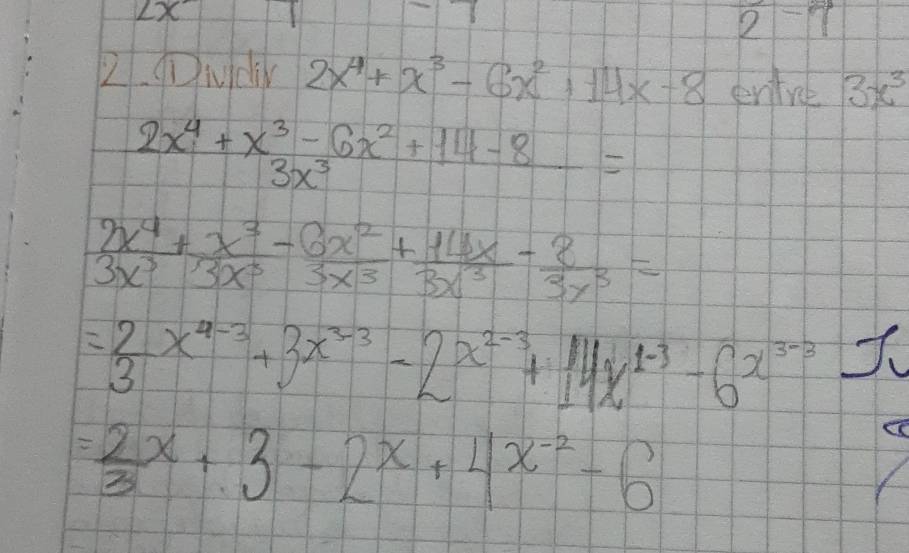 2x 7 - 7 2 - 7
2. Dividir 2x⁴ + x³ - 6x² + 14x - 8 entre 3x³
2x⁴ + x³ - 6x² + 14 - 8 / 3x³ =
2x⁴/3x³ + x³/3x³ - 6x²/3x³ + 14x/3x³ - 8/3x³ =
= 2/3 x⁴⁻³ + 3x³⁻³ - 2x²⁻³ + 14x¹⁻³ - 6x³⁻³
= 2/3 x + 3 - 2x + 4x⁻² - 6